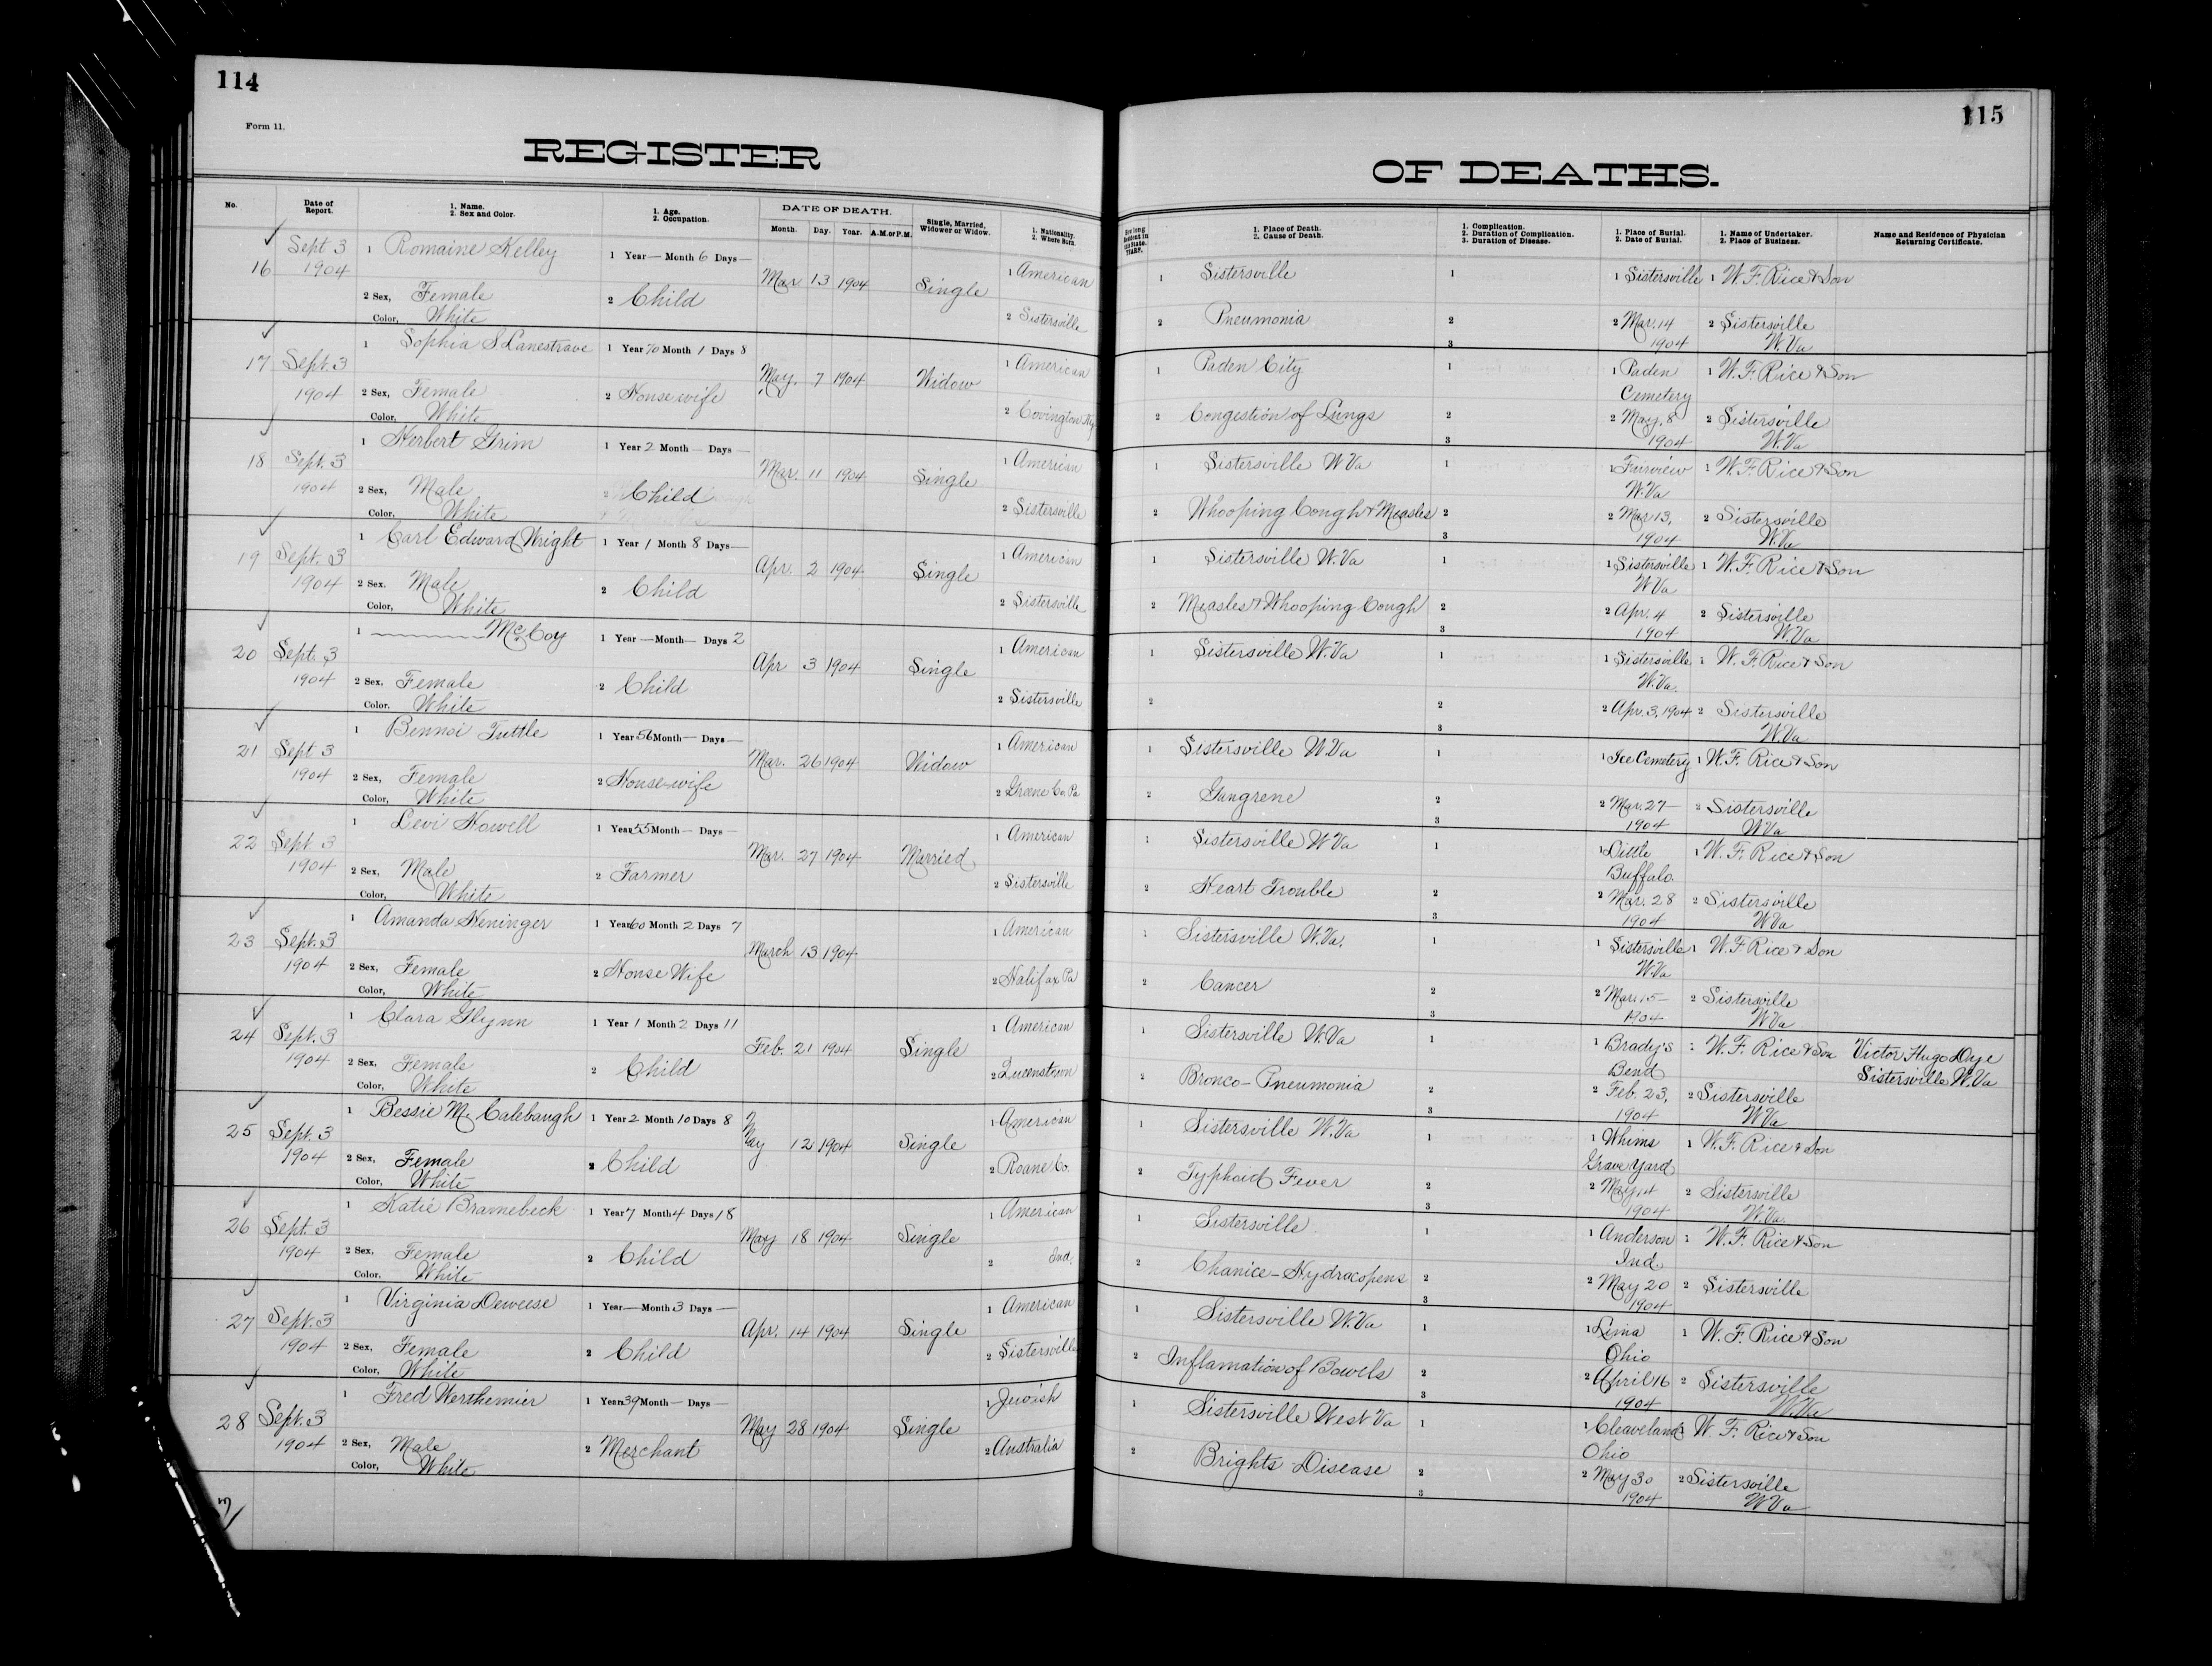 114
Form 11.
REGISTER
No.
Date of Report.
1. Name.
2. Sex and Color.
1. Age.
2. Occupation.
DATE OF DEATH.
Month. Day. Year. A.M. or P.M.
Single, Married, Widower or Widow.
1. Nationality.
2. Where Born.
16 Sept 3 1904 1 Romaine Kelley 1 Year — Month 6 Days — Mar 13 1904 Single 1 American
2 Sex, Female 2 Child 2 Sistersville
Color, White
17 Sept. 3 1904 1 Sophia S Lanestrave 1 Year 70 Month 1 Days 8 May. 7 1904 Widow 1 American
2 Sex, Female 2 Housewife 2 Covington Ky
Color, White
18 Sept. 3 1904 1 Herbert Grim 1 Year 2 Month — Days — Mar. 11 1904 Single 1 American
2 Sex, Male 2 Child 2 Sistersville
Color, White
19 Sept. 3 1904 1 Carl Edward Wright 1 Year 1 Month 8 Days — Apr. 2 1904 Single 1 American
2 Sex. Male 2 Child 2 Sistersville
Color, White
20 Sept. 3 1904 1 ——— McCoy 1 Year — Month — Days 2 Apr 3 1904 Single 1 American
2 Sex, Female 2 Child 2 Sistersville
Color, White
21 Sept 3 1904 1 Bennoi Tuttle 1 Year 56 Month — Days — Mar. 26 1904 Widow 1 American
2 Sex, Female 2 Housewife 2 Greene Co. Pa
Color, White
22 Sept. 3 1904 1 Levi Howell 1 Year 55 Month — Days — Mar. 27 1904 Married 1 American
2 Sex, Male 2 Farmer 2 Sistersville
Color, White
23 Sept. 3 1904 1 Amanda Heninger 1 Year 60 Month 2 Days 7 March 13 1904 1 American
2 Sex, Female 2 House Wife 2 Halifax Pa
Color, White
24 Sept. 3 1904 1 Clara Glynn 1 Year 1 Month 2 Days 11 Feb. 21 1904 Single 1 American
2 Sex, Female 2 Child 2 Queenstown
Color, White
25 Sept. 3 1904 1 Bessie M. Calebaugh 1 Year 2 Month 10 Days 8 May 12 1904 Single 1 American
2 Sex, Female 2 Child 2 Roane Co.
Color, White
26 Sept. 3 1904 1 Katie Bramebeck 1 Year 7 Month 4 Days 18 May 18 1904 Single 1 American
2 Sex, Female 2 Child 2 Ind.
Color. White
27 Sept. 3 1904 1 Virginia Deweese 1 Year — Month 3 Days — Apr. 14 1904 Single 1 American
2 Sex, Female 2 Child 2 Sistersville
Color, White
28 Sept. 3 1904 1 Fred Werthemier 1 Year 39 Month — Days — May 28 1904 Single 1 Jewish
2 Sex, Male 2 Merchant 2 Australia
Color, White
115
OF DEATHS.
How long Resident in this State. YEARS.
1. Place of Death.
2. Cause of Death.
1. Complication.
2. Duration of Complication.
3. Duration of Disease.
1. Place of Burial.
2. Date of Burial.
1. Name of Undertaker.
2. Place of Business.
Name and Residence of Physician Returning Certificate.
1 Sistersville 1 1 Sistersville 1 W. F. Rice & Son
2 Pneumonia 2 2 Mar. 14 1904 2 Sistersville W. Va
3
1 Paden City 1 1 Paden Cemetery 1 W. F. Rice & Son
2 Congestion of Lungs 2 2 May. 8 1904 2 Sistersville W. Va
3
1 Sistersville W Va 1 1 Fairview W. Va 1 W. F. Rice & Son
2 Whooping Cough & Measles 2 2 Mar 13, 1904 2 Sistersville W. Va
3
1 Sistersville W. Va 1 1 Sistersville W Va 1 W. F. Rice & Son
2 Measles & Whooping Cough 2 2 Apr. 4 1904 2 Sistersville W Va
3
1 Sistersville W. Va 1 1 Sistersville W. Va. 1 W. F. Rice & Son
2 2 2 Apr. 3, 1904 2 Sistersville W Va
3
1 Sistersville W Va 1 1 Ice Cemetery 1 W. F. Rice & Son
2 Gangrene 2 2 Mar. 27 — 1904 2 Sistersville W Va
3
1 Sistersville W Va 1 1 Little Buffalo. 1 W. F. Rice & Son
2 Heart Trouble 2 2 Mar. 28 1904 2 Sistersville W Va
3
1 Sistersville W. Va. 1 1 Sistersville W. Va 1 W. F Rice & Son
2 Cancer 2 2 Mar. 15 — 1904 2 Sistersville W Va
3
1 Sistersville W. Va 1 1 Brady's Bend 1 W. F. Rice & Son Victor Hugo Dye Sistersville W. Va
2 Bronco-Pneumonia 2 2 Feb. 23, 1904 2 Sistersville W Va
3
1 Sistersville W. Va 1 1 Whims Grave Yard 1 W. F. Rice & Son
2 Typhoid Fever 2 2 May 14 1904 2 Sistersville W. Va.
3
1 Sistersville 1 1 Anderson Ind. 1 W. F. Rice & Son
2 Chanice-Hydracopens 2 2 May 20 1904 2 Sistersville
3
1 Sistersville W. Va 1 1 Lima Ohio 1 W. F. Rice & Son
2 Inflamation of Bowels 2 2 April 16 1904 2 Sistersville W. Va
3
1 Sistersville West Va 1 1 Cleaveland Ohio 1 W. F. Rice & Son
2 Brights Disease 2 2 May 30 1904 2 Sistersville W Va
3